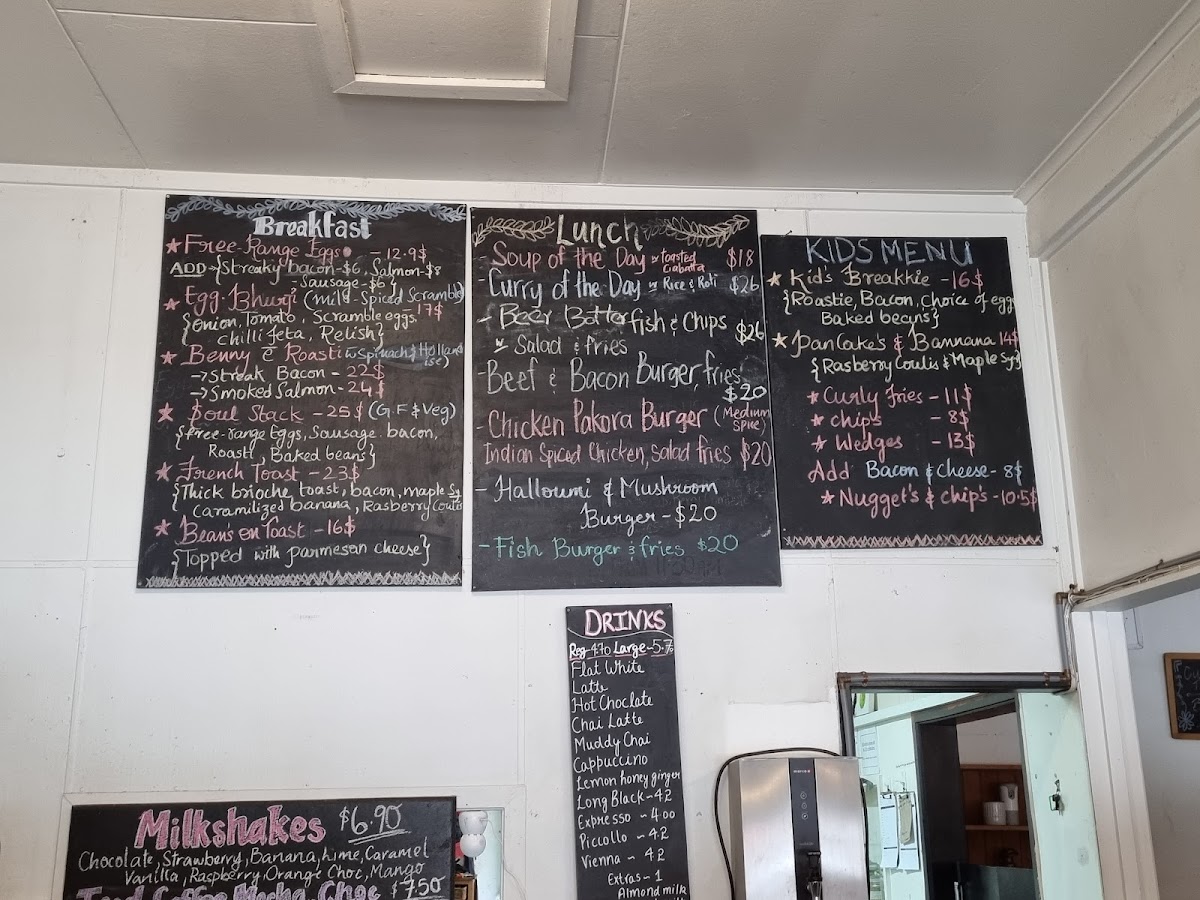 Breakfast
Free-Range Eggs - 12.9$
ADD → {Streaky bacon-$6, Salmon-$8
- Sausage-$6}
Egg Bhurji (Mild-Spiced Scramble)
- 17$
{Onion, Tomato, Scramble eggs,
chilli feta, Relish}
Benny & Roasti w Spinach & Holland
ise)
→ Streak Bacon - 22$
→ Smoked Salmon - 24$
Soul Stack - 25$ (G.F & Veg)
{free-range Eggs, Sausage, bacon,
Roasti, Baked beans}
French Toast - 23$
{Thick brioche, toast, bacon, maple Sy
caramilized banana, Rasberry Coulis
Beans on Toast - 16$
{Topped with parmesan cheese}
Lunch
- Soup of the Day w toasted Ciabatta $18
Curry of the Day w Rice & Roti $26
- Beer Batter fish & Chips $26
w Salad & fries
- Beef & Bacon Burger, fries
$20
- Chicken Pakora Burger (Medium Spice)
Indian Spiced Chicken, Salad fries $20
- Halloumi & Mushroom
Burger - $20
- Fish Burger & fries $20
KIDS MENU
Kid's Breakkie - 16$
{Roastie, Bacon, choice of egg
Baked beans}
PanCake's & Bannana 14$
{Rasberry Coulis & Maple Sy}
Curly Fries - 11$
chips - 8$
Wedges - 13$
Add Bacon & Cheese - 8$
Nugget's & chip's - 10.5$
DRINKS
Reg-4.70 Large-5.70
Flat White
Latte
Hot Choclate
Chai Latte
Muddy Chai
Cappuccino
Lemon honey ginger
Long Black - 4.2
Expresso - 4.00
Piccollo - 4.2
Vienna - 4.2
Extras - 1
Almond milk
Milkshakes $6.90
Chocolate, Strawberry, Banana, Lime, Caramel
Vanilla, Raspberry, Orange Choc, Mango
Iced Coffee, Mocha, Choc $7.50